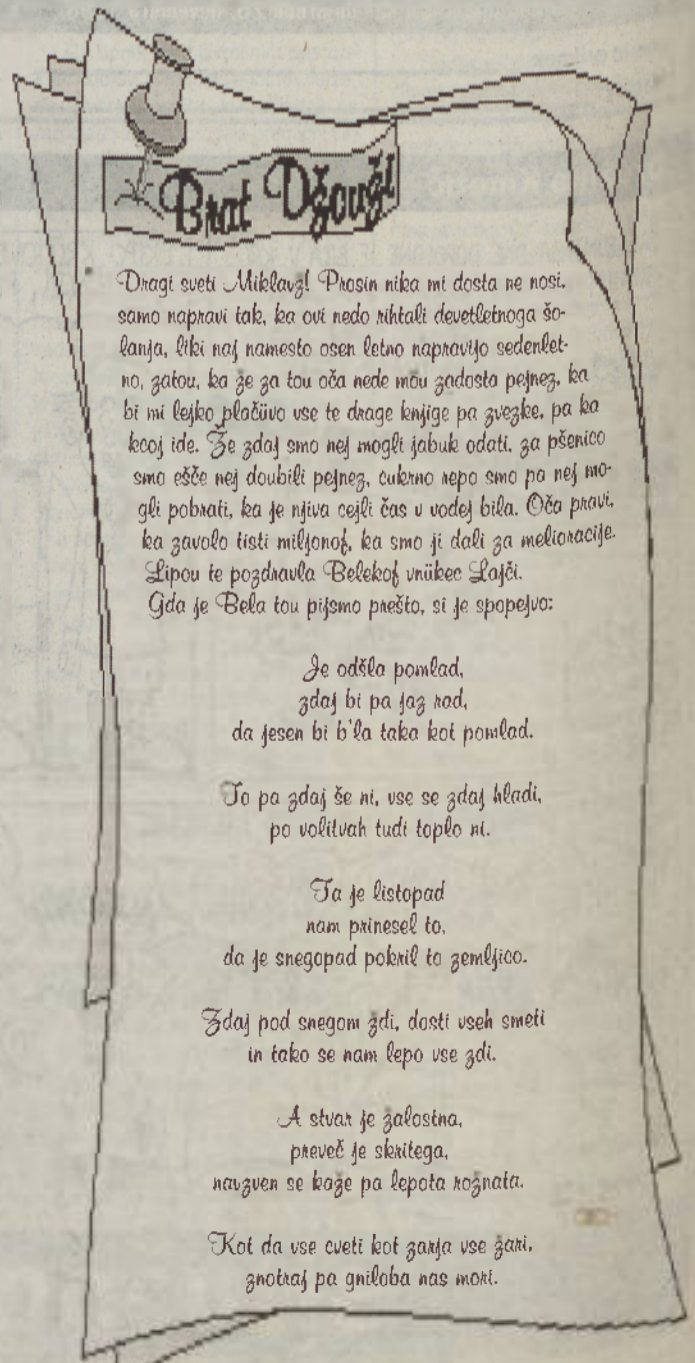 Brat Džouži
Dragi sveti Miklavž! Prosin nika mi dosta ne nosi,
samo napravi tak, ka ovi nedo rihtali devetletnoga šo-
lanja, liki naj namesto osen letno napravijo sedenlet-
no, zatou, ka že za tou oča nede mou zadosta pejnez, ka
bi mi lejko plačüvo vse te drage knjige pa zvezke, pa ka
kcoj ide. Že zdaj smo nej mogli jabuk odati, za pšenico
smo ešče nej doubili pejnez, cukrno repo smo pa nej mo-
gli pobrati, ka je njiva cejli čas v vodej bila. Oča pravi,
ka zavolo tisti miljonof, ka smo ji dali za melioracije.
Lipou te pozdravla Belekof vnükec Lajči.
Gda je Bela tou pijsmo prešto, si je spopejvo:
Je odšla pomlad,
zdaj bi pa jaz rad,
da jesen bi b'la taka kot pomlad.
To pa zdaj še ni, vse se zdaj hladi,
po volitvah tudi toplo ni.
Ta je listopad
nam prinesel to,
da je snegopad pokril to zemljico.
Zdaj pod snegom ždi, dosti vseh smeti
in tako se nam lepo vse zdi.
A stvar je žalostna,
preveč je skritega,
navzven se kaže pa lepota rožnata.
Kot da vse cveti kot zarja vse žari,
znotraj pa gniloba nas mori.